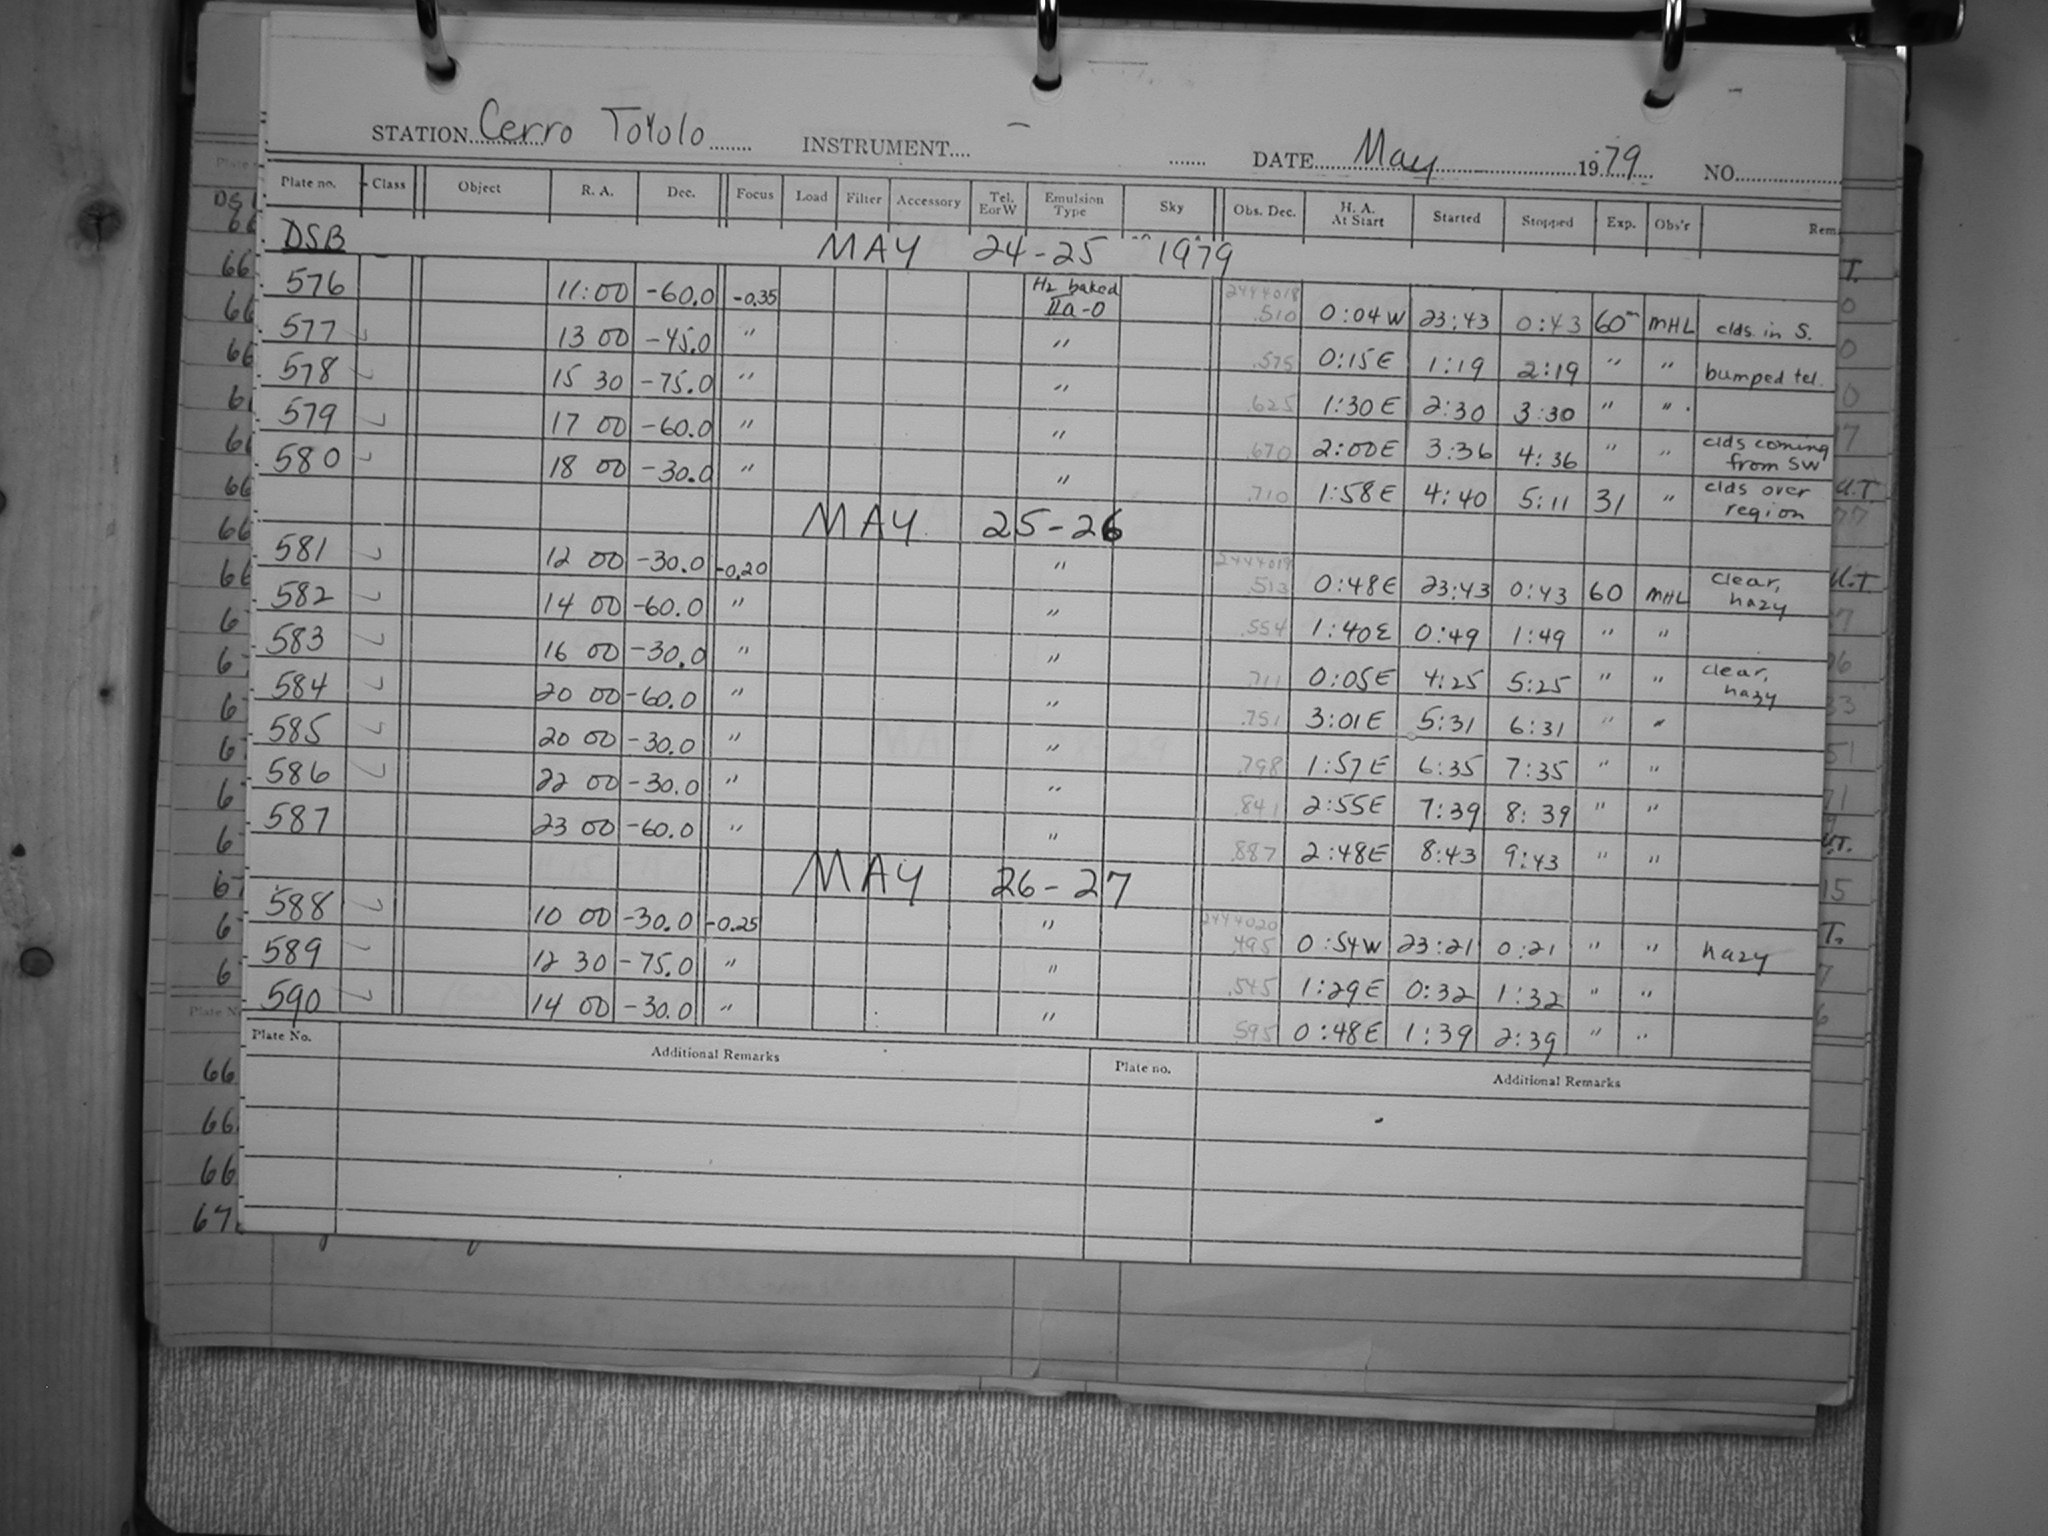 STATION Cerro Tololo INSTRUMENT - DATE May 1979 NO.
Plate no. Class Object R. A. Dec. Focus Load Filter Accessory Tel. E or W Emulsion Type Sky Obs. Dec. H. A. At Start Started Stopped Exp. Obs'r Rem.
DSB MAY 24-25 1979
576 11:00 -60.0 -0.35 H2 baked IIa-O 2444018 .510 0:04W 23:43 0:43 60m MHL clds. in S.
577 13 00 -45.0 " " .575 0:15E 1:19 2:19 " " bumped tel.
578 15 30 -75.0 " " .625 1:30E 2:30 3:30 " "
579 17 00 -60.0 " " .670 2:00E 3:36 4:36 " " clds coming from SW
580 18 00 -30.0 " " .710 1:58E 4:40 5:11 31 " clds over region
MAY 25-26
581 12 00 -30.0 -0.20 " 2444019 .513 0:48E 23:43 0:43 60 MHL clear, hazy
582 14 00 -60.0 " " .554 1:40E 0:49 1:49 " "
583 16 00 -30.0 " " .711 0:05E 4:25 5:25 " " clear, hazy
584 20 00 -60.0 " " .751 3:01E 5:31 6:31 " "
585 20 00 -30.0 " " .798 1:57E 6:35 7:35 " "
586 22 00 -30.0 " " .841 2:55E 7:39 8:39 " "
587 23 00 -60.0 " " .887 2:48E 8:43 9:43 " "
MAY 26-27
588 10 00 -30.0 -0.25 " 2444020 .495 0:54W 23:21 0:21 " " hazy
589 12 30 -75.0 " " .545 1:29E 0:32 1:32 " "
590 14 00 -30.0 " " .595 0:48E 1:39 2:39 " "
Plate No. Additional Remarks Plate no. Additional Remarks